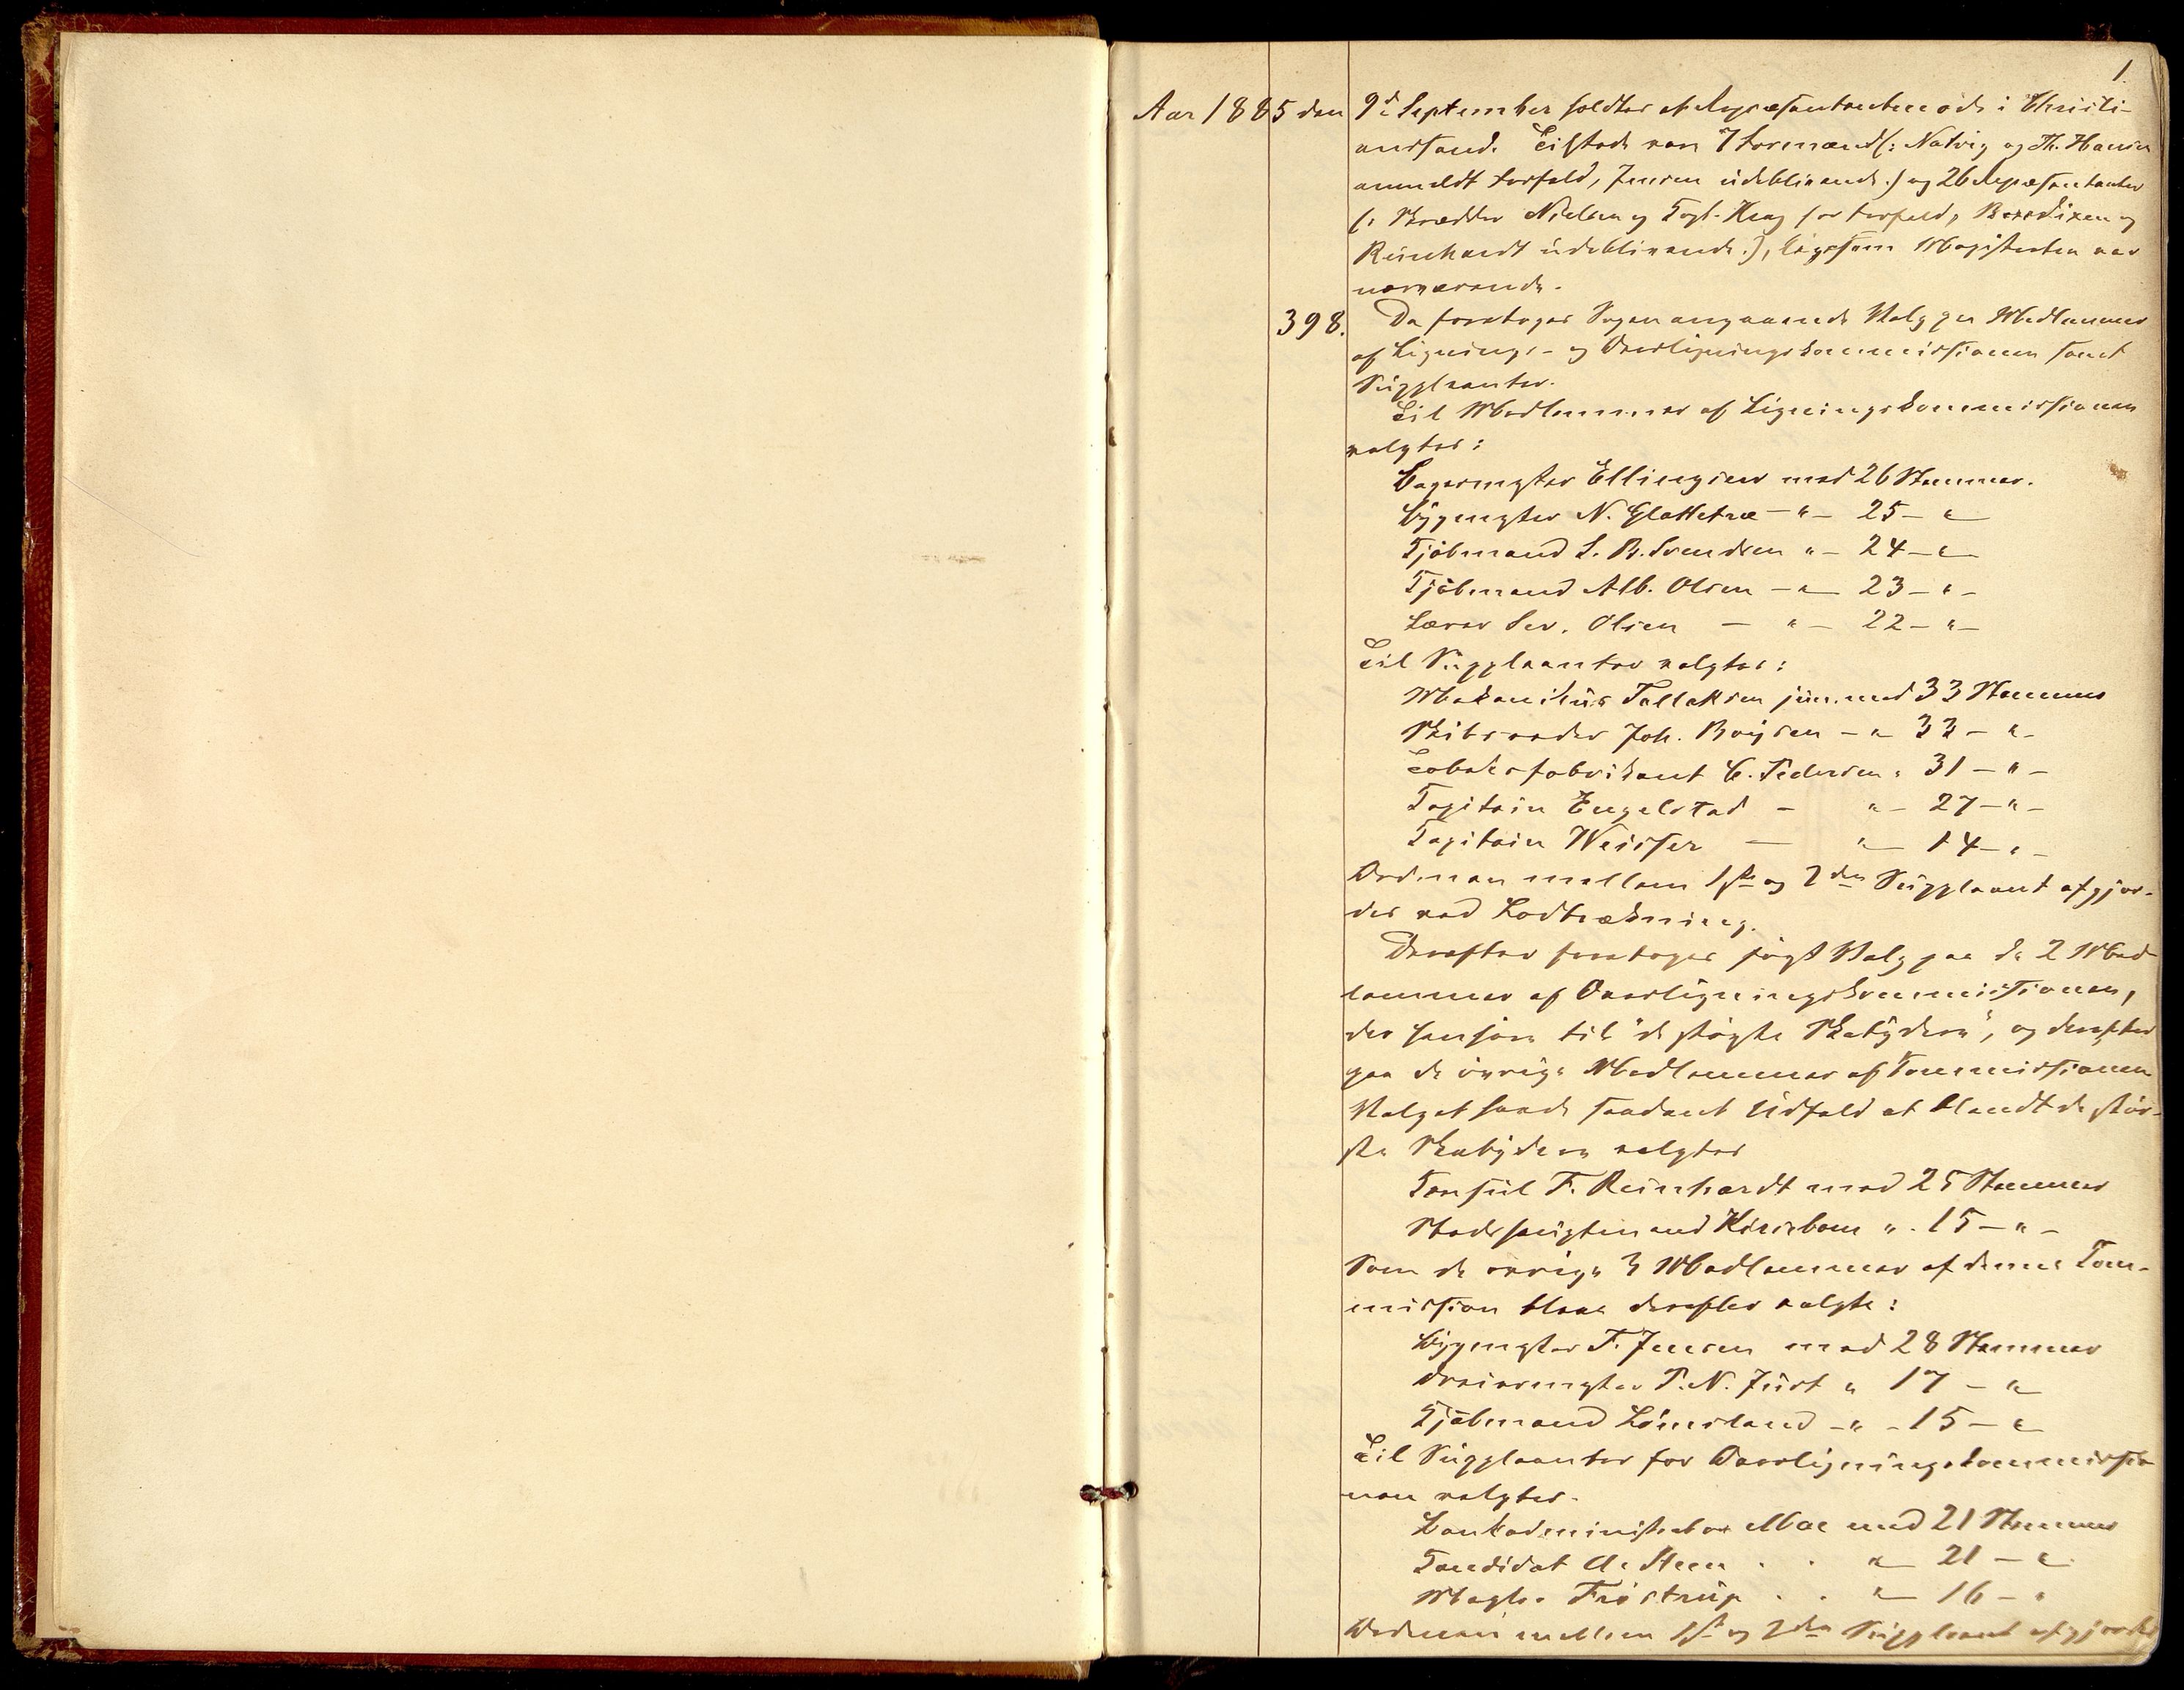 1.
Aar 1885 den 9de September holdtes et Repræsentantmøde i Christi-
anssand. Tilstede var 7 Formænd (: Natvig og Th. Hansen
anmeldt Forfald, Jensen udeblivende.) og 26 Repræsentanter
(: Skrædder Nielsen og Fogt. Krag for Forfald, Bendixen og
Reinhardt udeblivende.), ligesom Magistraten var
nærværende.
398. Da foretoges Sagen angaaende Valg paa Medlemmer
af Lignings- og Overligningskommissionen samt
Suppleanter.
Til Medlemmer af Ligningskommissionen
valgtes:
Bagermester Ellingsen med 26 Stemmer.
Bygmester N. Glattetræ - " - 25 - "
Kjøbmand S. B. Svendsen " - 24 - "
Kjøbmand Alb. Olsen - " - 23 - " -
Lærer Sev. Olsen - " - 22 - " -
Til Suppleanter valgtes:
Mekanikus Tallaksen jun. med 33 Stemmer
Skibsreder Joh. Boysen - " 33 - " -
Tobaksfabrikant C. Pedersen " 31 - " -
Kapitain Engelstad - " - 27 - " -
Kapitain Weisser - " - 14 - " -
Ordenen mellem 1ste og 2den Suppleant afgjor-
des ved Lodtrækning.
Derefter foretoges først Valg paa de 2 Med-
lemmer af Overligningskommissionen,
der henhøre til "de høieste Skatydere", og derefter
paa de øvrige Medlemmer af Kommissionen
Valget havde saadant Udfald at blandt de stør-
ste Skatydere valgtes
Konsul F. Reinhardt med 25 Stemmer
Stadshauptmand Kirsebom " - 15 - " -
Som de øvrige 3 Medlemmer af denne Kom-
mission bleve derefter valgte:
Bygmester F. Jensen med 28 Stemmer
Dreiermester P. N. Just " 17 - "
Kjøbmand Lømsland - " - 15 - "
Til Suppleanter for Overligningskommissio-
nen valgtes.
Bankadministrator Moe med 21 Stemmer
Kandidat A. Steen . . " 21 - "
Mægler Frøstrup . . " 16 - "
Ordenen mellem 1ste og 2den Suppleant afgjordes